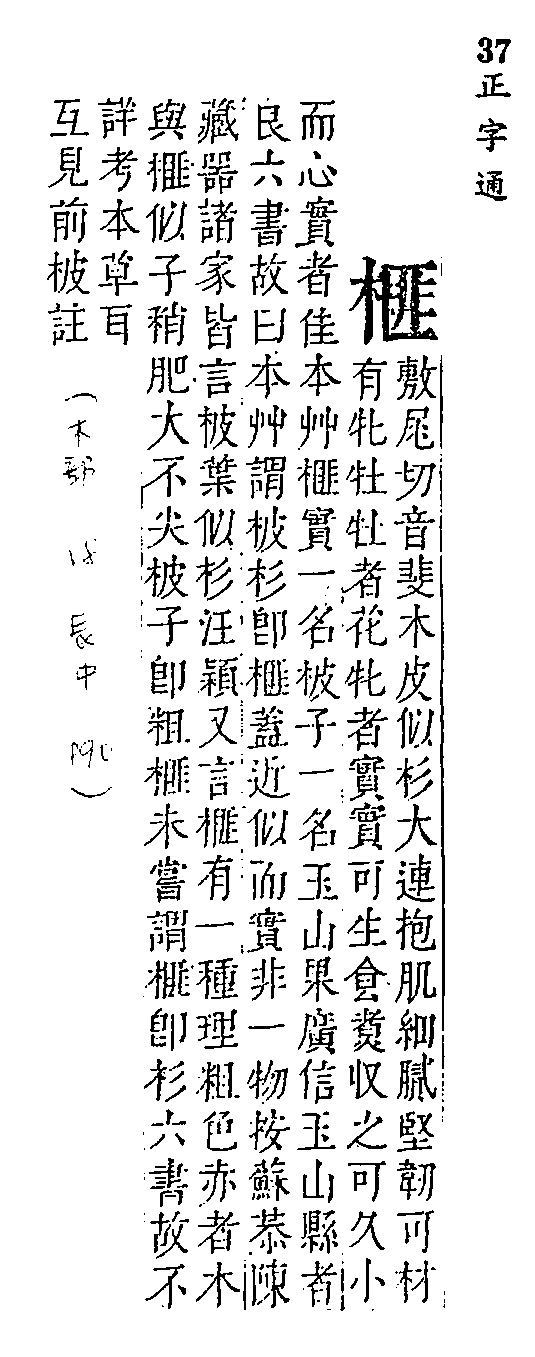 37正字通
榧
敷尾切音斐木皮似杉大連抱肌細膩堅韌可材
有牝牡牡者花牝者實實可生食收之可久小
而心實者佳本艸榧實一名柀子一名玉山果廣信玉山縣者
良六書故曰本艸謂柀杉卽榧葢近似而實非一物按蘇恭陳
藏器諸家皆言柀葉似杉汪穎又言榧有一種理粗色赤者木
與榧似子稍肥大不尖柀子卽粗榧未嘗謂榧卽杉六書故不
詳考本草耳
互見前柀註
（木部 辰中）